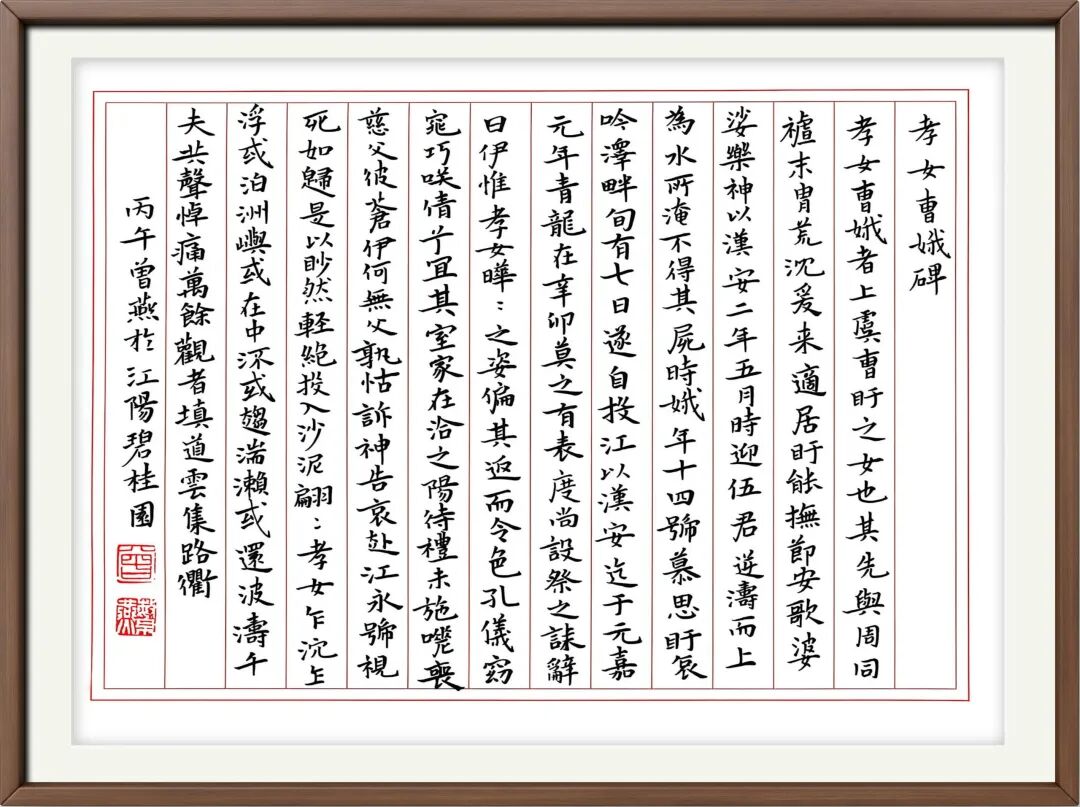 孝女曹娥碑
孝女曹娥者上虞曹盱之女也其先與周同
祖末胄荒沈爰来適居盱能撫節安歌婆
娑樂神以漢安二年五月時迎伍君逆濤而上
為水所淹不得其屍時娥年十四號慕思盱哀
吟澤畔旬有七日遂自投江以漢安迄于元嘉
元年青龍在辛卯莫之有表度尚設祭之誄辭
曰伊惟孝女曄:之姿偏其返而令色孔儀窈
窕巧咲倩兮宜其室家在洽之陽待禮未施嗟喪
慈父彼蒼伊何無父孰怙訴神告哀赴江永號視
死如歸是以眇然輕絕投入沙泥翩:孝女乍沉乍
浮或泊洲嶼或在中流或趨湍瀨或還波濤千
夫共聲悼痛萬餘觀者填道雲集路衢
丙午曾燕於江陽碧桂園
曾